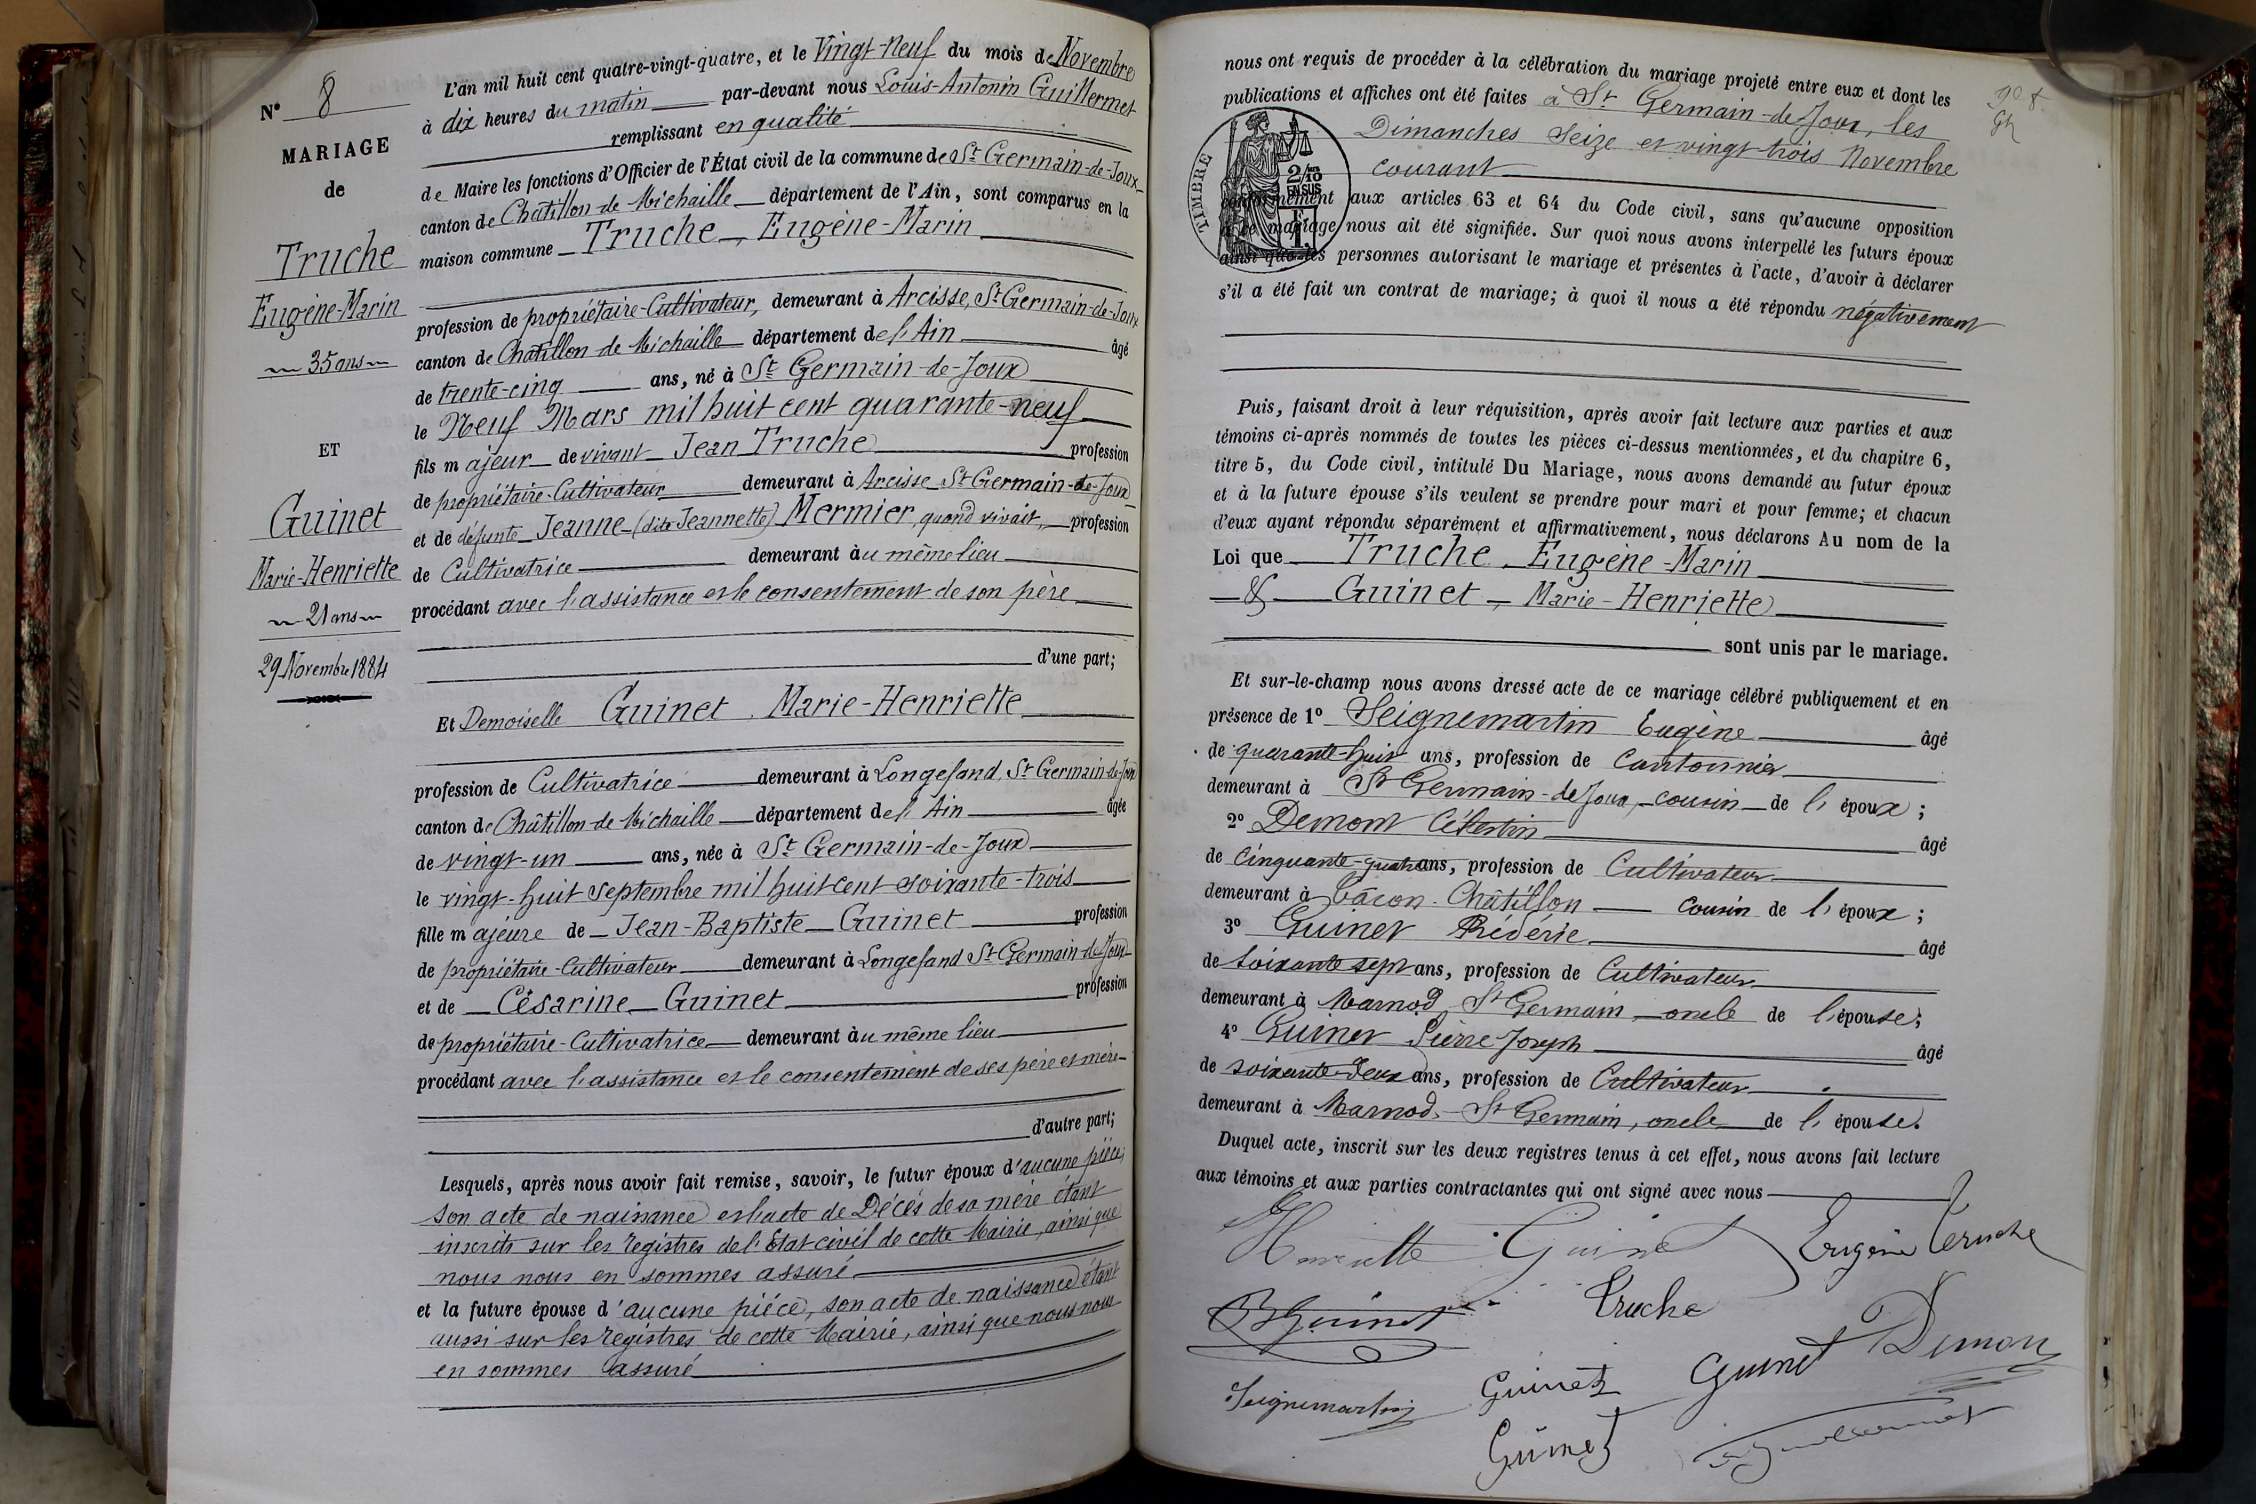 N° 8
MARIAGE
de
Truche
Eugène-Marin
35 ans
ET
Guinet
Marie-Henriette
21 ans
29 Novembre 1884
L'an mil huit cent quatre-vingt-quatre, et le Vingt-Neuf du mois de Novembre
à dix heures du matin par-devant nous Louis-Antonin Guillermet
remplissant en qualité
de Maire les fonctions d'Officier de l'État civil de la commune de St Germain-de-Joux
canton de Châtillon de Michaille département de l'Ain, sont comparus en la
maison commune Truche, Eugène-Marin
profession de propriétaire-Cultivateur, demeurant à Arcisse, St Germain-de-Joux
canton de Châtillon de Michaille département de l'Ain âgé
de trente-cinq ans, né à St Germain-de-Joux
le Neuf Mars mil huit cent quarante-neuf
fils majeur de vivant Jean Truche profession
de propriétaire-Cultivateur demeurant à Arcisse St Germain-de-Joux
et de défunte Jeanne (dite Jeannette) Mermier, quand vivait, profession
de Cultivatrice demeurant au même lieu
procédant avec l'assistance et le consentement de son père
d'une part;
Et Demoiselle Guinet Marie-Henriette
profession de Cultivatrice demeurant à Longefand, St Germain-de-Joux
canton de Châtillon de Michaille département de l'Ain âgée
de vingt-un ans, née à St Germain-de-Joux
le vingt-huit septembre mil huit cent soixante-trois
fille majeure de Jean-Baptiste Guinet profession
de propriétaire-Cultivateur demeurant à Longefand St Germain-de-Joux
et de Césarine Guinet profession
de propriétaire-Cultivatrice demeurant au même lieu
procédant avec l'assistance et le consentement de ses père et mère
d'autre part;
Lesquels, après nous avoir fait remise, savoir, le futur époux d'aucune pièce,
son acte de naissance et l'acte de Décès de sa mère étant
inscrits sur les registres de l'État civil de cette Mairie, ainsi que
nous nous en sommes assuré
et la future épouse d'aucune pièce, son acte de naissance étant
aussi sur les registres de cette Mairie, ainsi que nous nous
en sommes assuré
nous ont requis de procéder à la célébration du mariage projeté entre eux et dont les
publications et affiches ont été faites à St Germain-de-Joux, les
Dimanches Seize et vingt-trois Novembre
courant
TIMBRE
2/10
EN SUS
1F.
conformément aux articles 63 et 64 du Code civil, sans qu'aucune opposition
à ce mariage nous ait été signifiée. Sur quoi nous avons interpellé les futurs époux
ainsi que les personnes autorisant le mariage et présentes à l'acte, d'avoir à déclarer
s'il a été fait un contrat de mariage; à quoi il nous a été répondu négativement
Puis, faisant droit à leur réquisition, après avoir fait lecture aux parties et aux
témoins ci-après nommés de toutes les pièces ci-dessus mentionnées, et du chapitre 6,
titre 5, du Code civil, intitulé Du Mariage, nous avons demandé au futur époux
et à la future épouse s'ils veulent se prendre pour mari et pour femme; et chacun
d'eux ayant répondu séparément et affirmativement, nous déclarons Au nom de la
Loi que Truche Eugène-Marin
& Guinet, Marie-Henriette
sont unis par le mariage.
Et sur-le-champ nous avons dressé acte de ce mariage célébré publiquement et en
présence de 1° Seignemartin Eugène âgé
de quarante-huit ans, profession de Cantonnier
demeurant à St Germain-de-Joux, cousin de l'époux;
2° Demont Célestin âgé
de cinquante-quatre ans, profession de Cultivateur
demeurant à Châtillon cousin de l'époux;
3° Guinet Frédéric âgé
de soixante sept ans, profession de Cultivateur
demeurant à Marnod St Germain, oncle de l'épouse;
4° Guinet Pierre Joseph âgé
de soixante-deux ans, profession de Cultivateur
demeurant à Marnod, St Germain, oncle de l'épouse.
Duquel acte, inscrit sur les deux registres tenus à cet effet, nous avons fait lecture
aux témoins et aux parties contractantes qui ont signé avec nous
Henriette Guinet Eugène Truche
B Guinet Truche
Seignemartin Guinet Guinet Demon
Guinet Guillermet